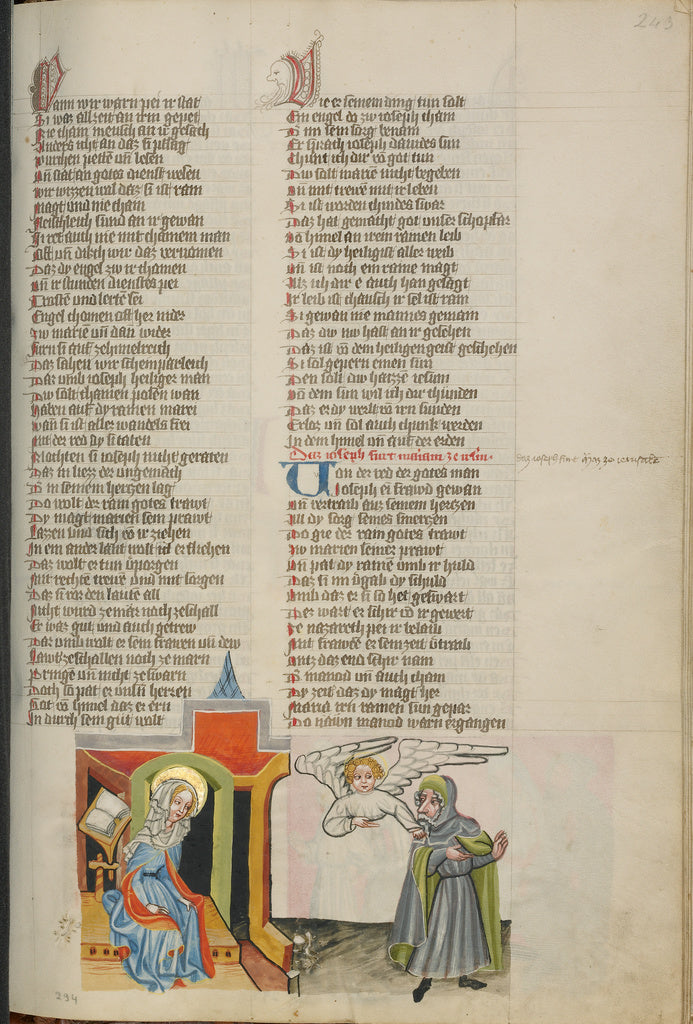 243
Wann wir warn pei ir stat
Si was allzeit an irm gepet
Nie cham mensch an ir gesch
Anders icht an daz si pflag
Wurchen petten uñ lesen
Uñ sat an gotes dienst wesen
Wir wizzen wal daz si ist rain
Magt und nie chain
Fleischleich sund an ir gewan
Si ret auch nie mit chainem man
Oft uñ dikch wir daz vernamen
Daz dy engel zw ir chamen
Uñ ir stunden dienstes pei
Trosten und lerten sei
Engel chomen oft her nider
Zw marie uñ dan wider
Furn si auf ze himelreich
Daz sahen wir schemparleich
Dar umb ioseph heiliger man
Dw solt chainen posen wan
Haben auf dy rainen marei
Wan si ist alles wandels frei
Mit der red dy si taten
Mochten si ioseph nicht geraten
Daz in liezz der ungemach
Der in seinem hertzen lag
Do wolt der rain gotes trawt
Dy magt marien sein prawt
Lazzen und sich vō ir ziehen
In ein ander lant wolt er fliehen
Daz wolt er tun v̈porgen
Mit rechter trewe und mit sorgen
Daz si vor den laute all
Nicht wurd ze mär noch ze schall
Er was gut und auch getrew
Dar umb wolt er sein frawen uñ dew
Nicht ze schallen noch ze märn
Pringē uñ nicht ze swarn
Doch so pat er unsñ herren
Got vō himel daz er ern
In durch sein güt wolt
Wie er seinem ding tun solt
Ein engel da zw ioseph cham
Der im sein sorg benam
Er sprach ioseph dauides sun
Chunt ich dir vō got tun
Dw solt marie nicht begeben
Uñ mit trewē mit ir leben
Si ist worden chindes swar
Daz hat gemacht got unser schopfar
Vō himel an irem rainen leib
Si ist dy heiligist aller weib
Uñ ist noch ein raine magt
Als ich dir ē auch han gesagt
Ir leib ist chausch ir sel ist rain
Si gewan nie mannes gemain
Daz dw nw hast an ir gesehen
Daz ist vō dem heiligen geist geschehen
Si sol gepern einen sun
Den solt dw haizze iesum
Uñ dem sun wil ich dir chunden
Daz er dy welt vō irn sunden
Erloz uñ sol auch chunk werden
In dem himel uñ auf der erden
Daz ioseph furt mariam ze
Von der red der gotes man
Ioseph ei frawd gewan
Uñ vertraib auz seinem hertzen
All dy sorg seines smertzen
Do gie der rain gotes trawt
Zw marien seiner prawt
Uñ pat dy raine umb ir huld
Daz si im v̈gab dy schuld
Umb daz er si so het geswart
Des wart er schir vō ir gewert
Ze nazareth pei ir belaib
Mit frawdē er sein zeit v̈traib
Untz daz end schir nam
Der manod uñ auch cham
Dy zeit daz dy magt her
Maria irn rainen sun gepar
Do nawn manod warn ergangen
294